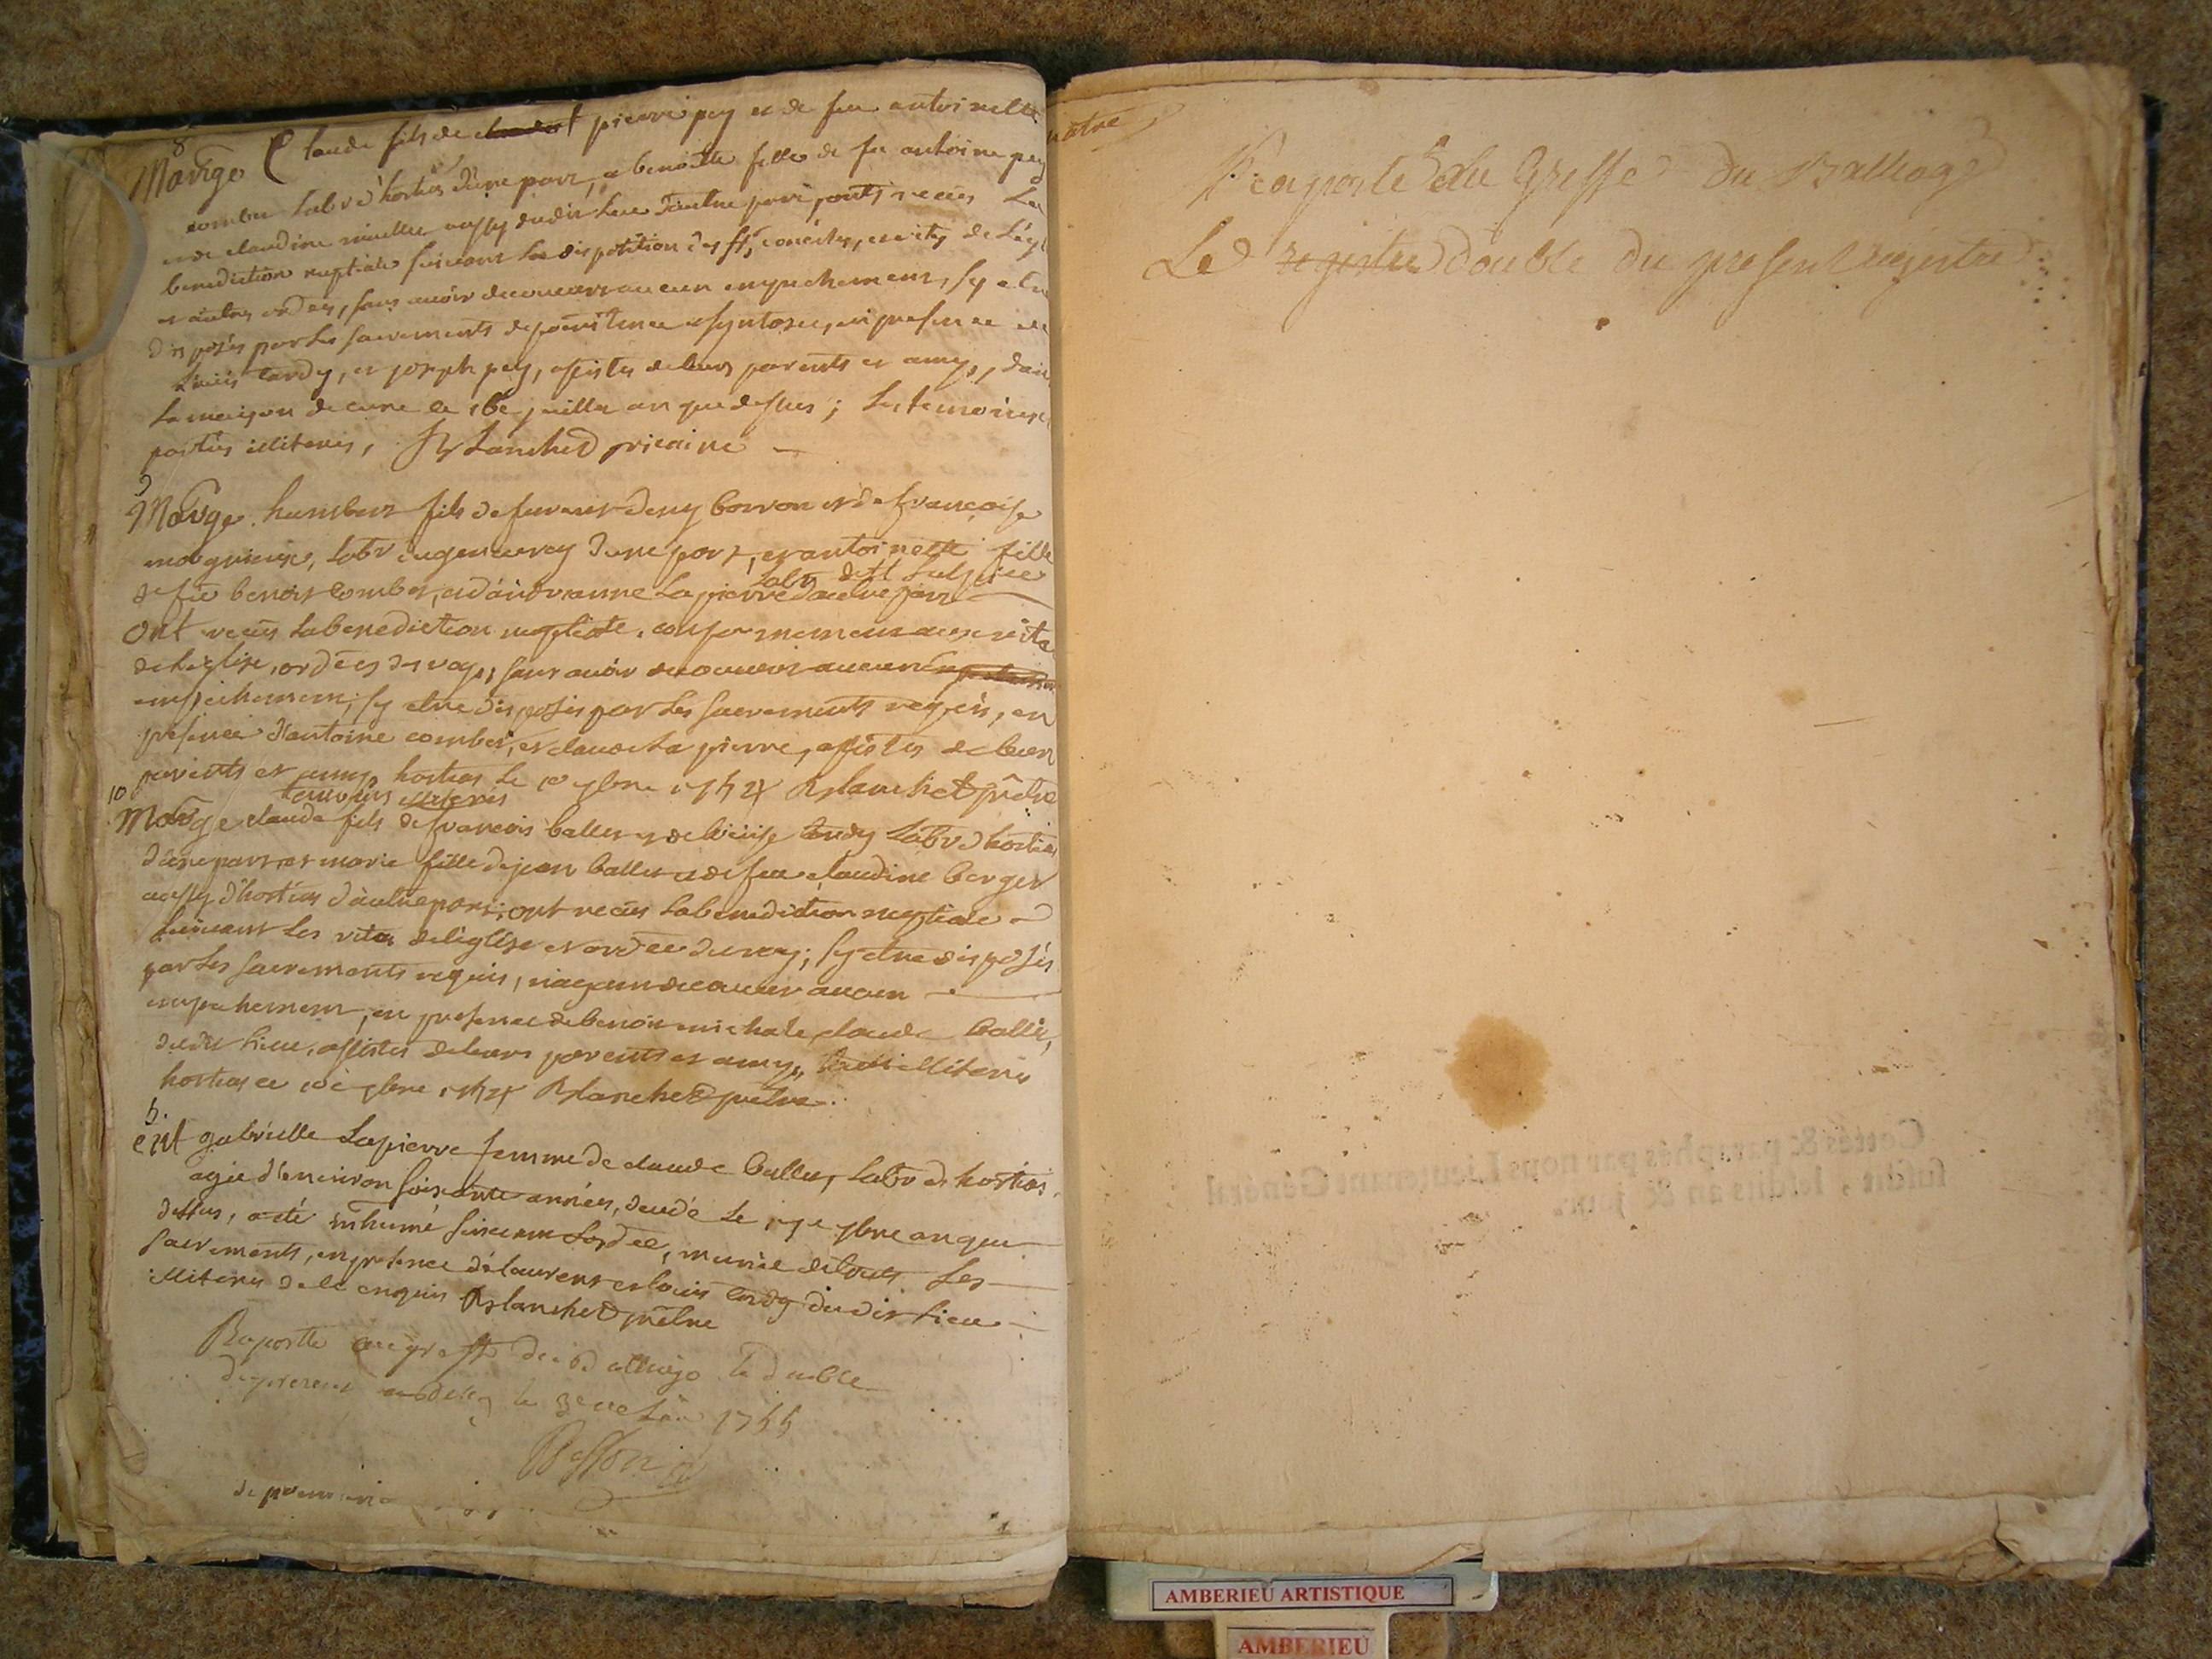 8
Mariage Claude fils de pierre pey et de feu antoinette
combe labr d'hostias d'une part, et benoitte fille de feu antoine pey
et de claudine aussy dudit lieu d'autre part, ont reçus La
benediction nuptiale suivant la disposition des sts conciles, et rites de l'egl
et autres ordces, sans avoir decouvert aucun empechement, s'y etre
disposés par les sacrements de pœnitence et syntaxe, en presence de
Louis tardy, et joseph pey, assistés de leurs parents et amys, dans
la maison de cure le 16e juillet an que dessus; les temoins et
parties illiteres, Blanchet vicaire
9
Mariage humbert fils de feu Borron et de françoise
labr d'une part, et antoinette fille
labr de st sulpice
de feu benoit combe, et d'andreanne Lapierre d'autre part
Ont reçus la benediction nuptiale, conformement aux rites
de l'eglise, ordces du roy, sans avoir decouvert aucun
empechement, s'y etre disposés par les sacrements requis, en
presence d'antoine combe, et claude la pierre, assistés de leurs
parents et amys hostias le 10 7bre 1754 Blanchet prêtre
temoins illiteres
10
Mariage claude fils de francois ballet et de louise tardy labr d'hostias
d'une part, et marie fille de jean ballet et de feu claudine berger
aussy d'hostias d'autre part, ont reçus la benediction nuptiale
suivant les rites de l'eglise et ordce du roy; s'y etre disposés
par les sacrements requis, n'ayant decouvert aucun
empechement, en presence de benoit michal et claude ballet,
dudit lieu, assistés de leurs parents et amys, illiteres
hostias ce 10e 7bre 1754 Blanchet prêtre
5.
ent gabrielle Lapierre femme de claude ballet, labr d'hostias,
agée d'environ soixante années, decedé le 17e 7bre an que
dessus, a été inhumé suivant l'ordce, munie de touts les
sacrements, en presence de laurent et louis tardy dudit lieu
illiteres de ce enquis Blanchet prêtre
Raporté au greffe du Balliage le double
du present a Belley le 1755
Besson
natre
Raporté au Greffe du Balliage
Le registre double du present registre
Cottés & paraphés par nous Lieutenant Général
susdit, lesdits an & jour.
AMBERIEU ARTISTIQUE
AMBERIEU